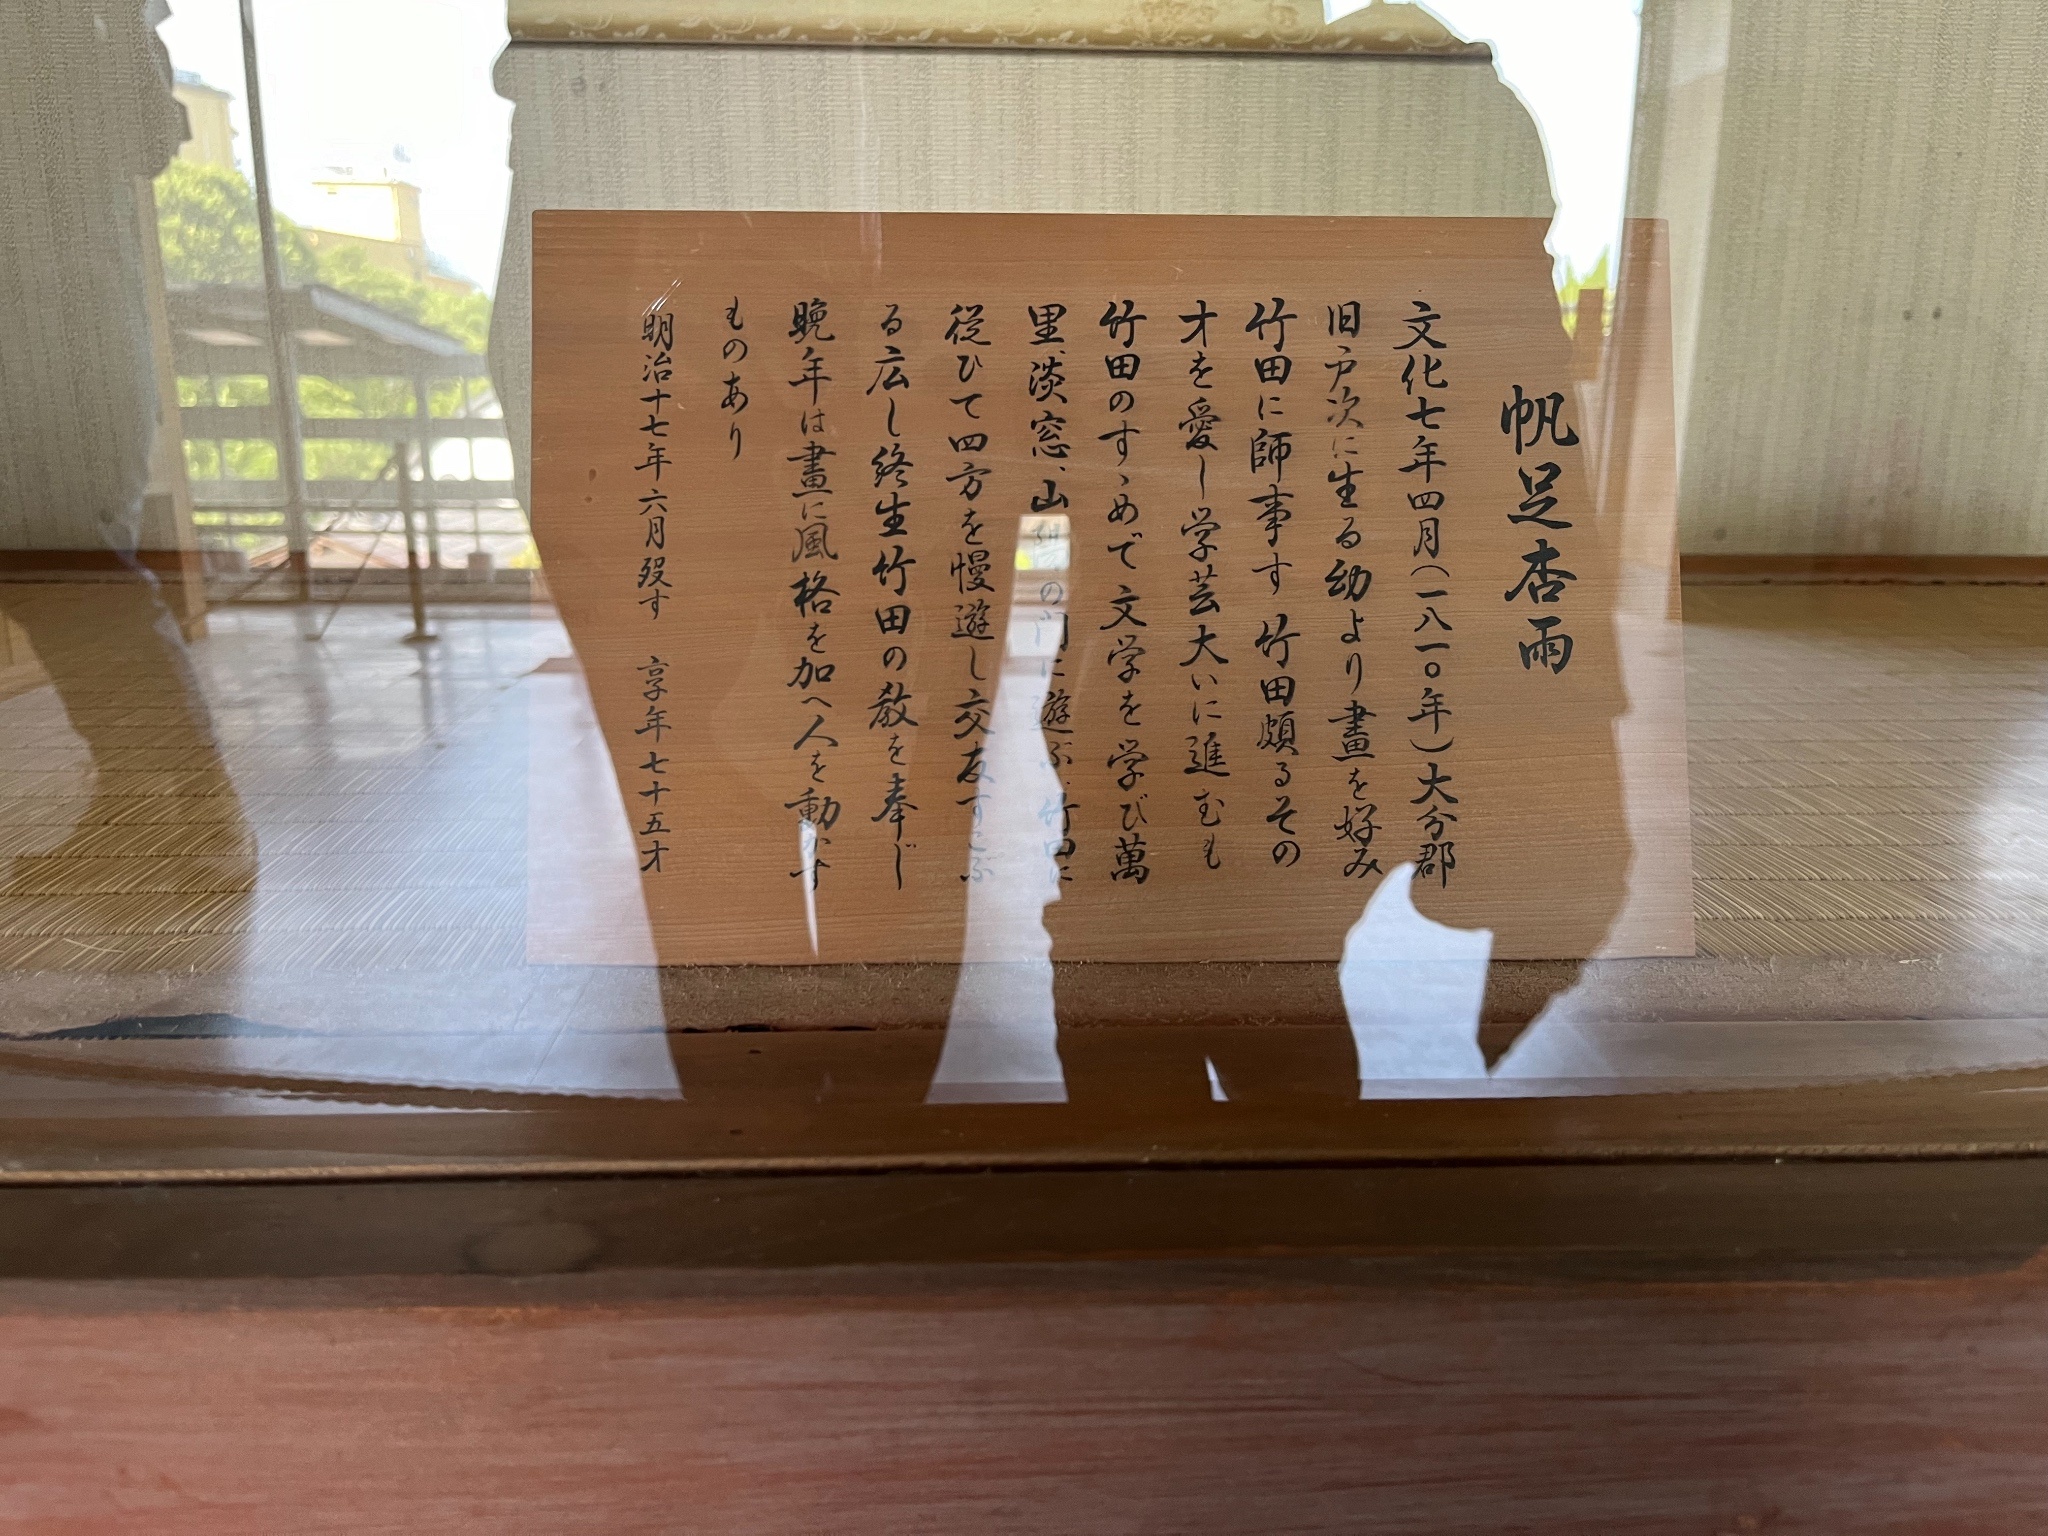 帆足杏雨
文化七年四月(一八一〇年)大分郡
旧戸次に生る幼より畫を好み
竹田に師事す竹田頗るその
才を愛し学芸大いに進むも
竹田のすゝめで文学を学び萬
里、淡窓、山陽の門に遊ぶ、竹田に
従ひて四方を慢遊し交友すこぶ
る広し終生竹田の教を奉じ
晩年は畫に風格を加へ人を動かす
ものあり
明治十七年六月歿す 享年七十五才